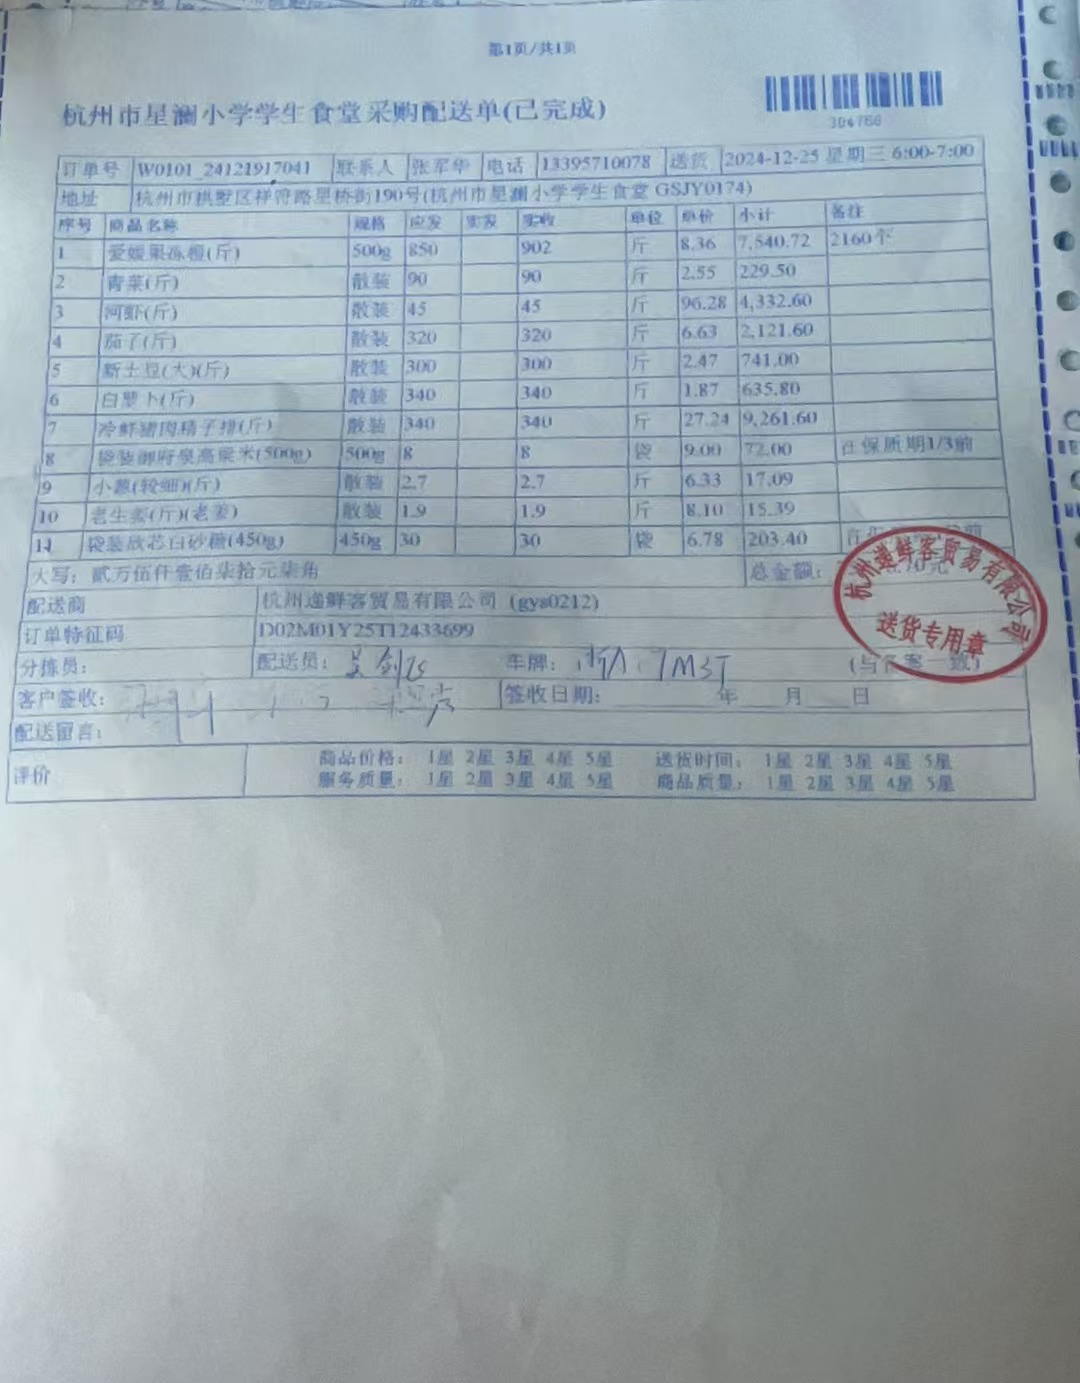 第1页/共1页
杭州市星澜小学学生食堂采购配送单(已完成)
304766
订单号 W0101_24121917041 联系人 张军华 电话 13395710078 送货 2024-12-25 星期三 6:00-7:00
地址 杭州市拱墅区祥符路星桥街190号(杭州市星澜小学学生食堂 GSJY0174)
序号 商品名称 规格 应发 实发 实收 单位 单价 小计 备注
1 爱媛果冻橙(斤) 500g 850 902 斤 8.36 7,540.72 2160个
2 青菜(斤) 散装 90 90 斤 2.55 229.50
3 河虾(斤) 散装 45 45 斤 96.28 4,332.60
4 茄子(斤) 散装 320 320 斤 6.63 2,121.60
5 新土豆(大)(斤) 散装 300 300 斤 2.47 741.00
6 白萝卜(斤) 散装 340 340 斤 1.87 635.80
7 冷鲜猪肉精子排(斤) 散装 340 340 斤 27.24 9,261.60
8 袋装御府泉高粱米(500g) 500g 8 8 袋 9.00 72.00 在保质期1/3前
9 小葱(较细)(斤) 散装 2.7 2.7 斤 6.33 17.09
10 老生姜(斤)(老姜) 散装 1.9 1.9 斤 8.10 15.39
11 袋装放芯白砂糖(450g) 450g 30 30 袋 6.78 203.40
大写: 贰万伍仟壹佰柒拾元柒角 总金额:
配送商 杭州递鲜客贸易有限公司 (gys0212)
订单特征码 D02M01Y25T12433699
杭州递鲜客贸易有限公司
送货专用章
分拣员: 配送员: 车牌:
客户签收: 签收日期: 年 月 日
配送留言:
评价 商品价格: 1星 2星 3星 4星 5星 送货时间: 1星 2星 3星 4星 5星
服务质量: 1星 2星 3星 4星 5星 商品质量: 1星 2星 3星 4星 5星